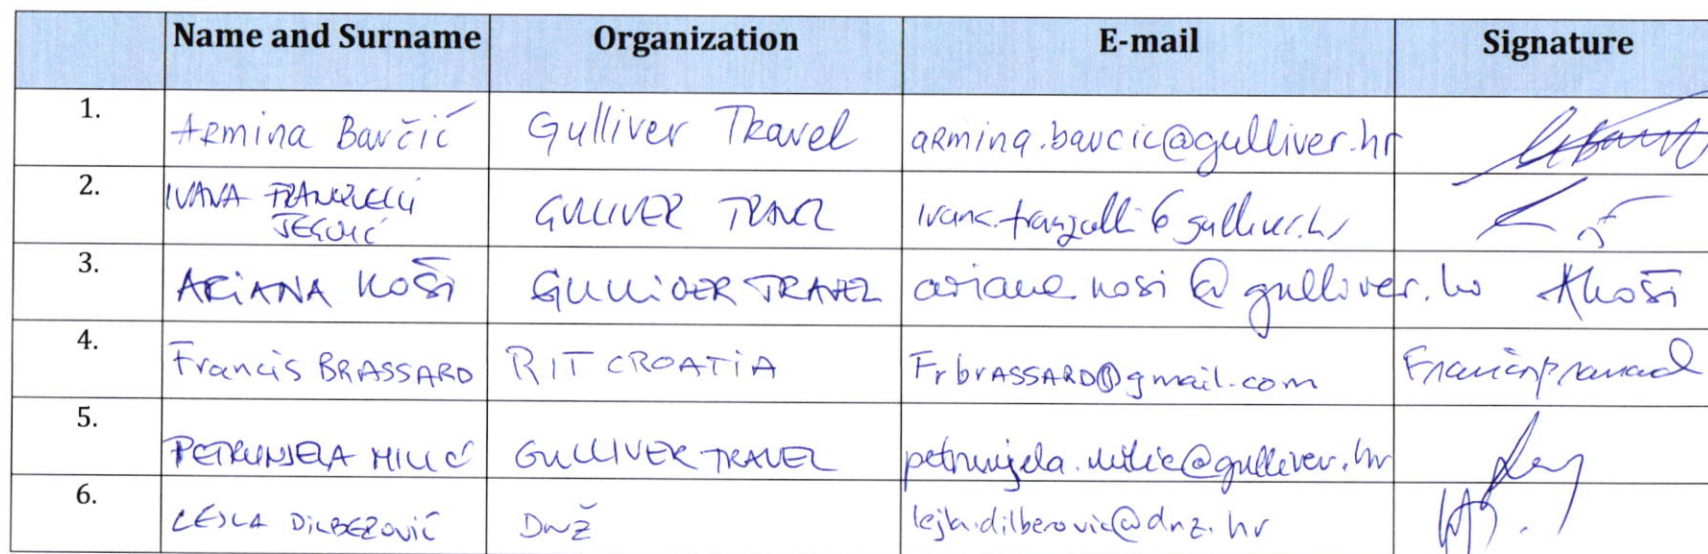 Name and Surname Organization E-mail Signature
1. Armina Barčić Gulliver Travel armina.barcic@gulliver.hr
2. IVANA FRANZELLI GULLIVER TRAVEL
3. ARIANA KOŠI GULLIVER TRAVEL ariana.kosi@gulliver.hr AKoši
4. Francis BRASSARD RIT CROATIA FrbrASSARD@gmail.com
5. PETRUNJELA MILIĆ GULLIVER TRAVEL petrunjela.milic@gulliver.hr
6. LEJLA DILBEROVIĆ DNŽ lejla.dilberovic@dnz.hr